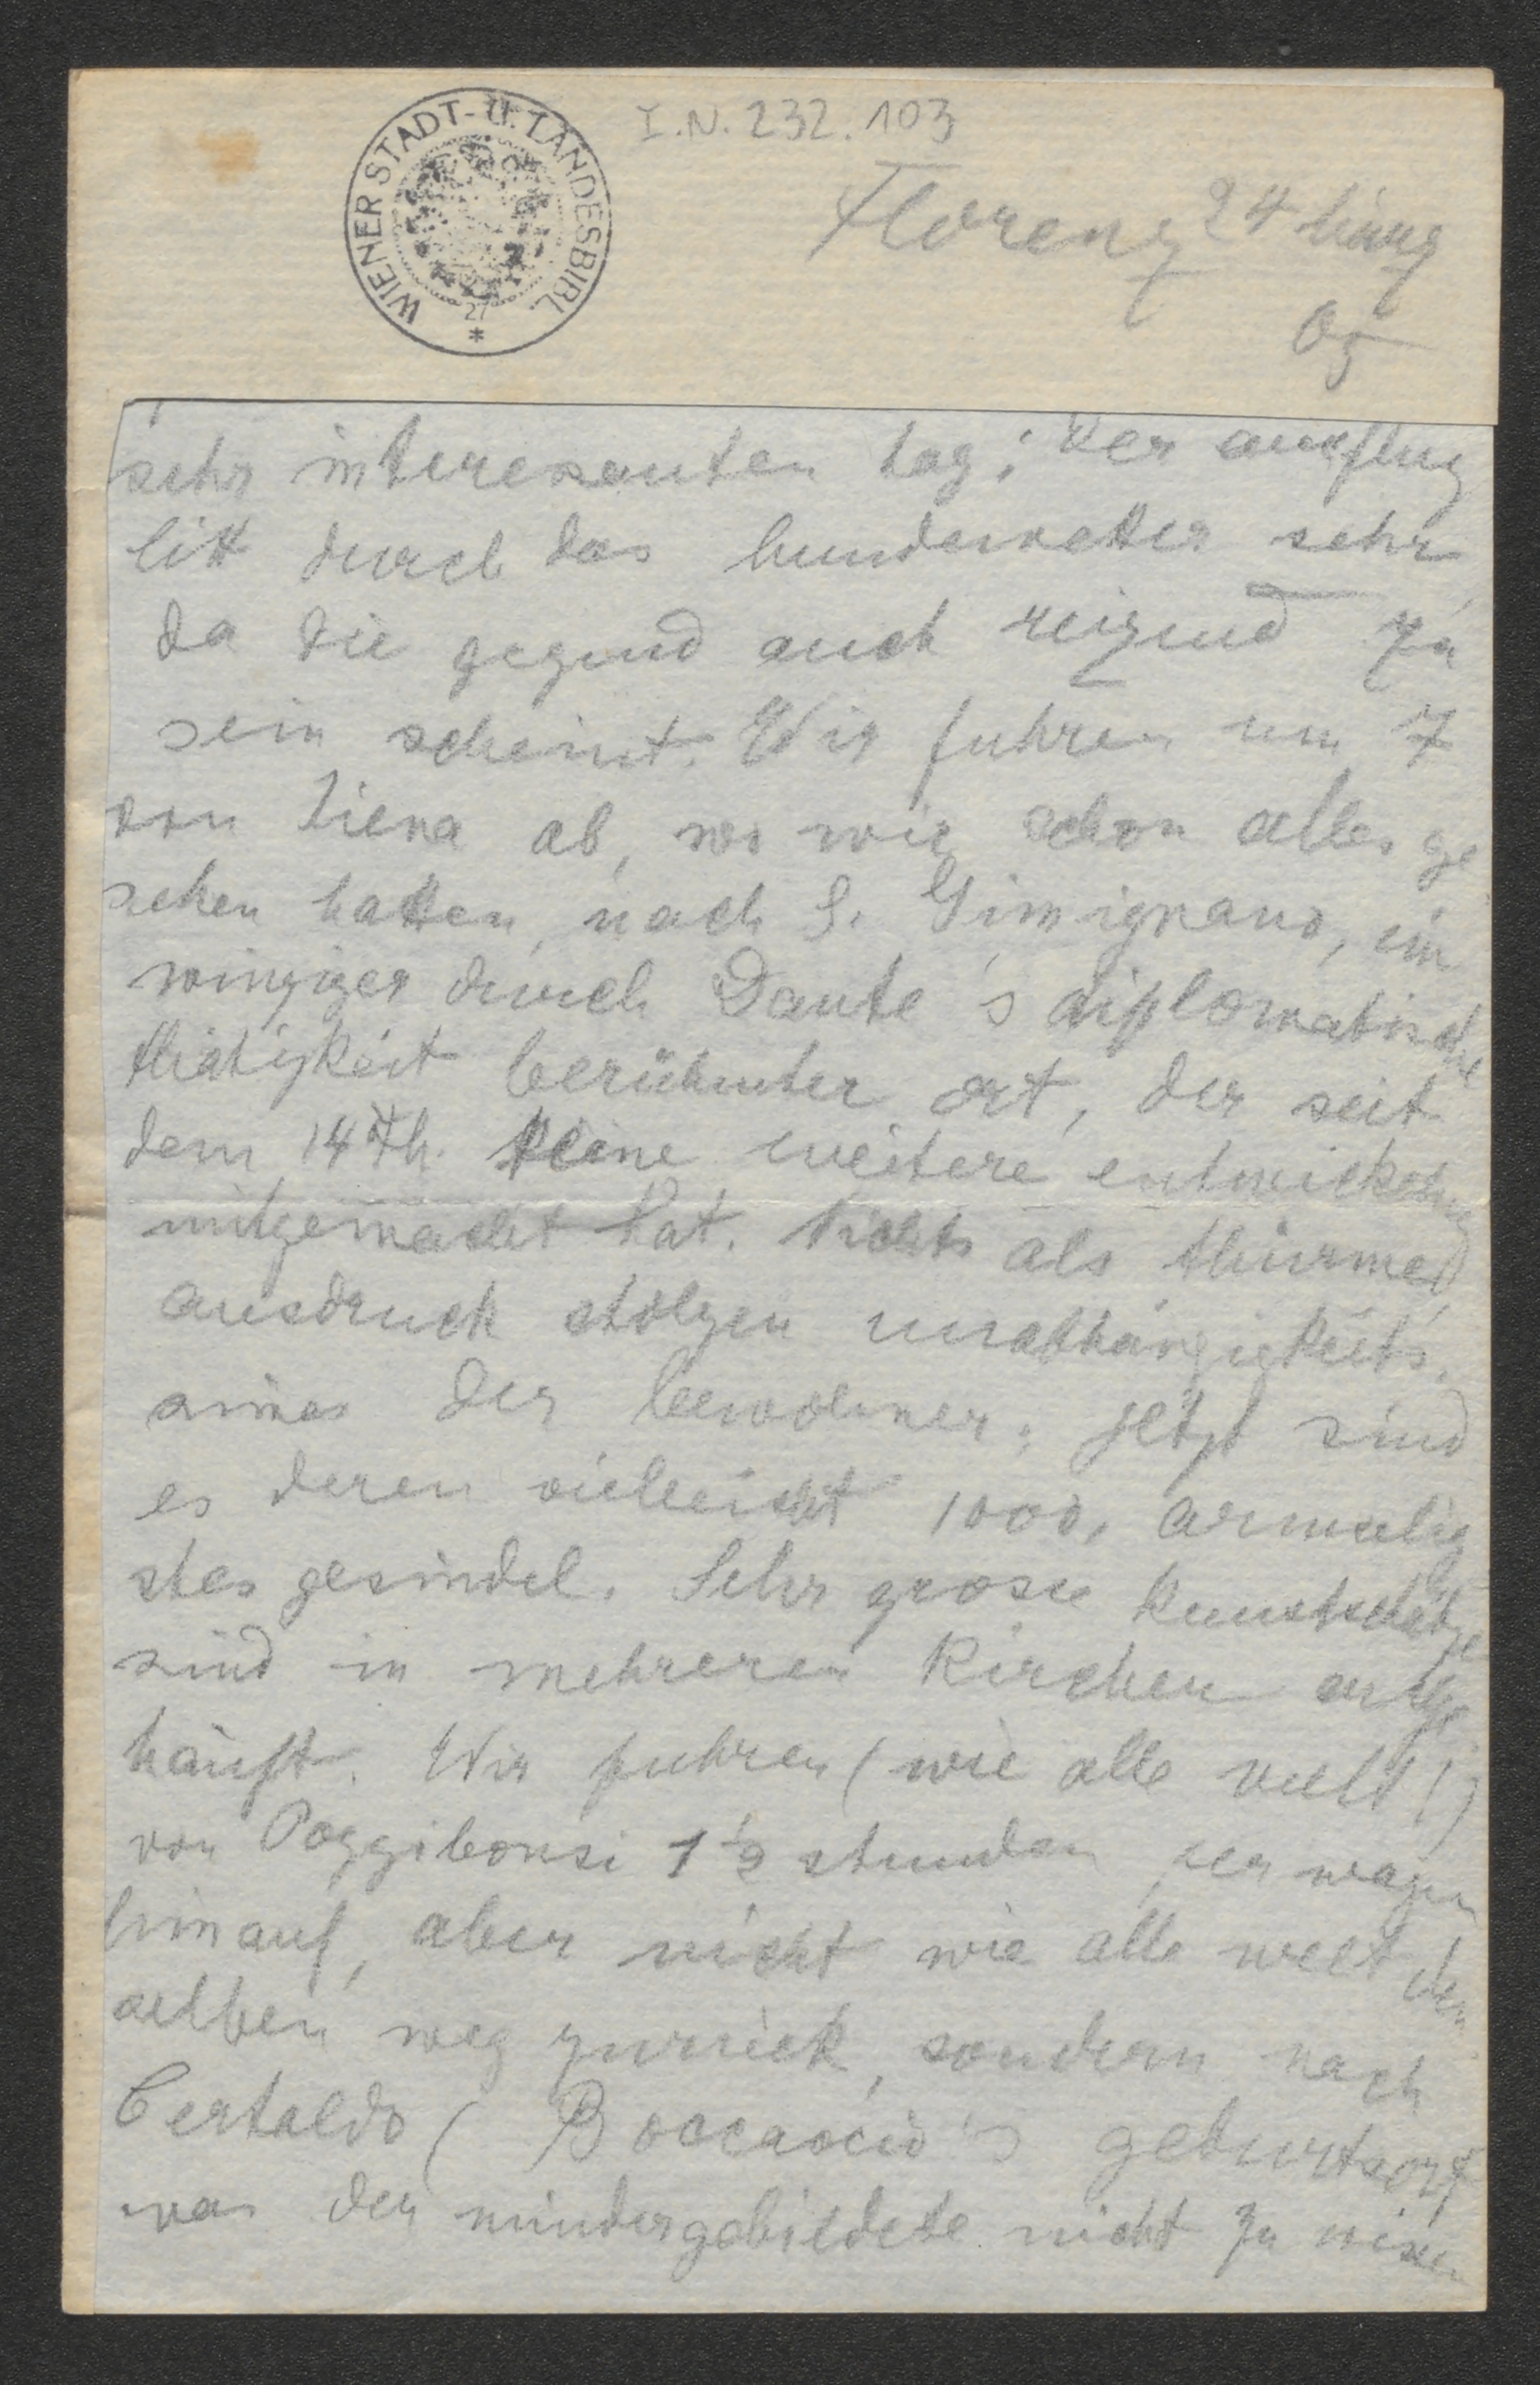 WIENER STADT- U. LANDESBIBL.
27
*
I.N. 232.103
Florenz 24 März
05
sehr interesanten tag; der ausflug
litt durch das hundewetter sehr,
da die gegend auch reizend zu
sein scheint. Wir fuhren um 7
von Siena ab, wo wir schon alles ge
sehen hatten, nach S. Gimignano, ein
winziger durch Dante's diplomatische
thätigkeit berühmter ort, der seit
dem 14 Jh. keine weitere entwickelung
mitgemacht hat. Nichts als thürme,
ausdruck stolzen unabhängigkeits
sines der bewohner; jetzt sind
es deren vielleicht 1000, armselig
stes gesindel. Sehr grose kunstschätze
sind in mehreren Kirchen ange
häuft. Wir fuhren (wie alle welt!)
von Poggibonsi 1½ stunden per wagen
hinauf, aber nicht wie alle welt den
selben weg zurück, sondern nach
Certaldo (Boccaccio's geburtsort
was der mindergebildete nicht zu wisen